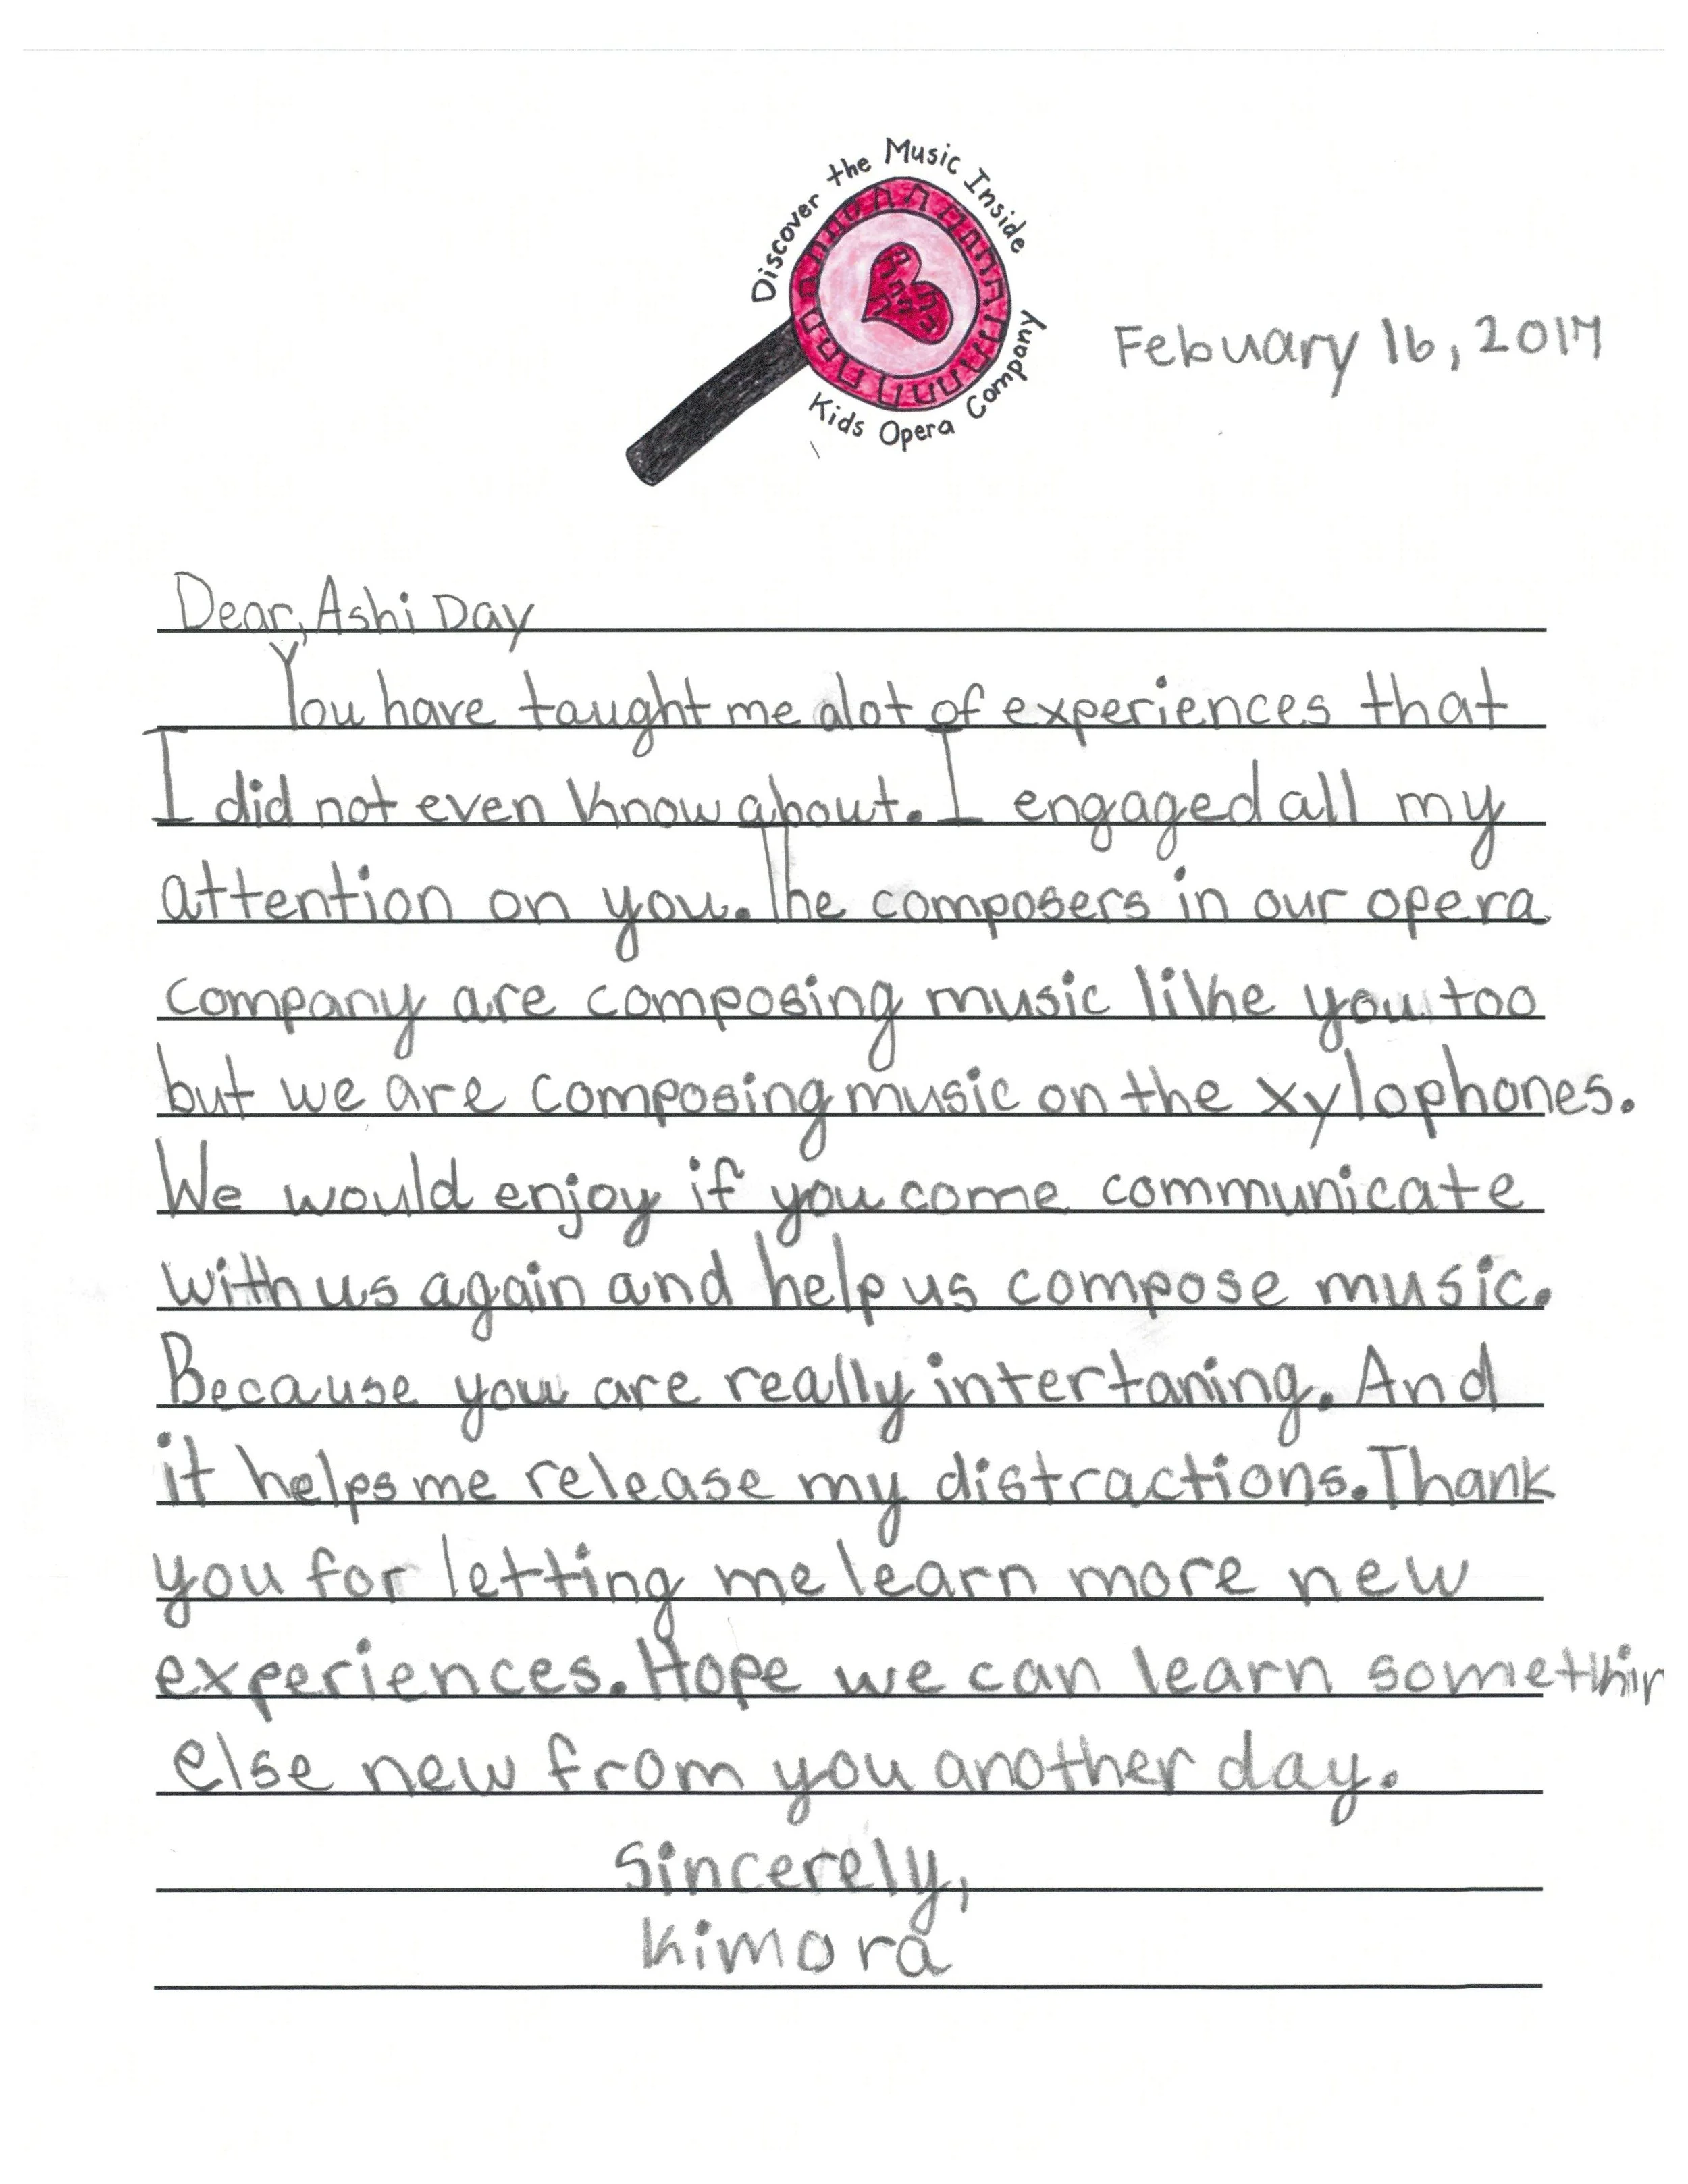 Discover the Music Inside
Kids Opera Company
Febuary 16, 2017
Dear, Ashi Day
You have taught me alot of experiences that
I did not even know about. I engaged all my
attention on you. The composers in our opera
company are composing music like you too
but we are composing music on the xylophones.
We would enjoy if you come communicate
with us again and help us compose music.
Because you are really intertaning. And
it helps me release my distractions. Thank
you for letting me learn more new
experiences. Hope we can learn somethin
else new from you another day.
Sincerely,
Kimora